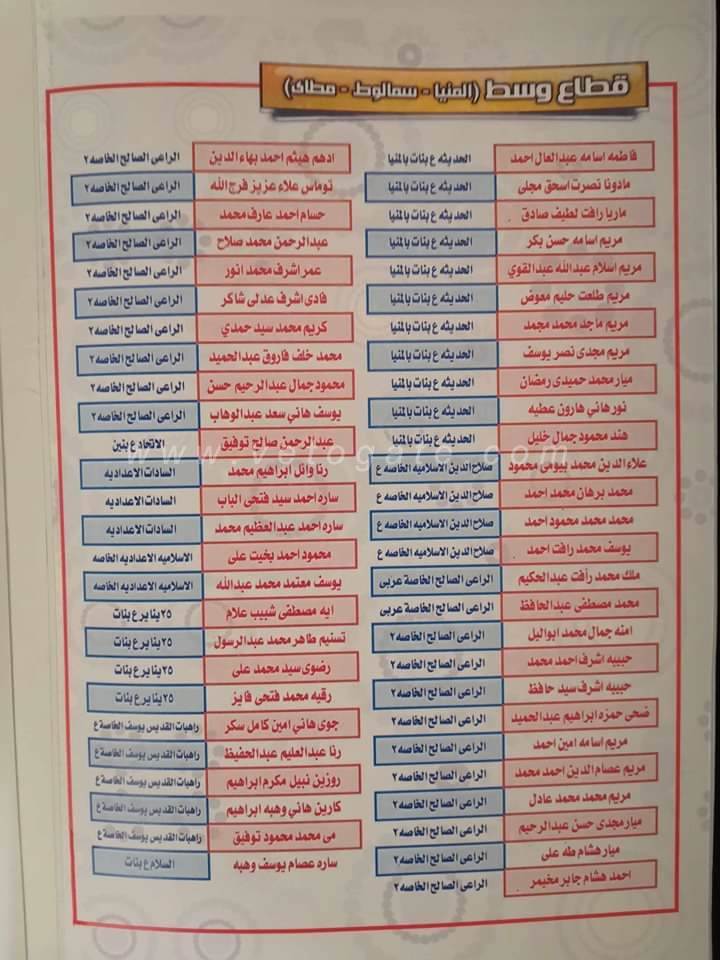 قطاع وسط (المنيا - سمالوط - مطاى)
فاطمه اسامه عبدالعال احمد الحديثه ع بنات بالمنيا
مادونا نصرت اسحق مجلى الحديثه ع بنات بالمنيا
ماريا رافت لطيف صادق الحديثه ع بنات بالمنيا
مريم اسامه حسن بكر الحديثه ع بنات بالمنيا
مريم اسلام عبدالله عبدالقوي الحديثه ع بنات بالمنيا
مريم طلعت حليم معوض الحديثه ع بنات بالمنيا
مريم ماجد محمد محمد الحديثه ع بنات بالمنيا
مريم مجدى نصر يوسف الحديثه ع بنات بالمنيا
ميار محمد حميدى رمضان الحديثه ع بنات بالمنيا
نور هاني هارون عطيه الحديثه ع بنات بالمنيا
هند محمود جمال خليل الحديثه ع بنات بالمنيا
علاء الدين محمد بيومى محمود صلاح الدين الاسلاميه الخاصه ع
محمد برهان محمد احمد صلاح الدين الاسلاميه الخاصه ع
محمد محمد محمود احمد صلاح الدين الاسلاميه الخاصه ع
يوسف محمد رافت احمد صلاح الدين الاسلاميه الخاصه ع
ملك محمد رأفت عبدالحكيم الراعى الصالح الخاصة عربى
محمد مصطفى عبدالحافظ الراعى الصالح الخاصة عربى
امنه جمال محمد ابوالبل الراعى الصالح الخاصه ٢
حبيبه اشرف احمد محمد الراعى الصالح الخاصه ٢
حبيبه اشرف سيد حافظ الراعى الصالح الخاصه ٢
ضحى حمزه ابراهيم عبدالحميد الراعى الصالح الخاصه ٢
مريم اسامه امين احمد الراعى الصالح الخاصه ٢
مريم عصام الدين احمد محمد الراعى الصالح الخاصه ٢
مريم محمد محمد عادل الراعى الصالح الخاصه ٢
ميار مجدى حسن عبدالرحيم الراعى الصالح الخاصه ٢
ميار هشام طه على الراعى الصالح الخاصه ٢
احمد هشام جابر مخيمر الراعى الصالح الخاصه ٢
ادهم هيثم احمد بهاء الدين الراعى الصالح الخاصه ٢
توماس علاء عزيز فرج الله الراعى الصالح الخاصه ٢
حسام احمد عارف محمد الراعى الصالح الخاصه ٢
عبدالرحمن محمد صلاح الراعى الصالح الخاصه ٢
عمر اشرف محمد انور الراعى الصالح الخاصه ٢
فادى اشرف عدلى شاكر الراعى الصالح الخاصه ٢
كريم محمد سيد حمدي الراعى الصالح الخاصه ٢
محمد خلف فاروق عبدالحميد الراعى الصالح الخاصه ٢
محمود جمال عبدالرحيم حسن الراعى الصالح الخاصه ٢
يوسف هاني سعد عبدالوهاب الراعى الصالح الخاصه ٢
عبدالرحمن صالح توفيق الاتحاد ع بنين
رنا وائل ابراهيم محمد السادات الاعداديه
ساره احمد سيد فتحى الباب السادات الاعداديه
ساره احمد عبدالعظيم محمد السادات الاعداديه
محمود احمد بخيت على الاسلاميه الاعداديه الخاصه
يوسف معتمد محمد عبدالله الاسلاميه الاعداديه الخاصه
ايه مصطفى شبيب علام ٢٥ يناير ع بنات
تسنيم طاهر محمد عبدالرسول ٢٥ يناير ع بنات
رضوى سيد محمد على ٢٥ يناير ع بنات
رقيه محمد فتحى فايز ٢٥ يناير ع بنات
جوى هاني امين كامل سكر راهبات القديس يوسف الخاصة ع
رنا عبدالعليم عبدالحفيظ راهبات القديس يوسف الخاصة ع
روزين نبيل مكرم ابراهيم راهبات القديس يوسف الخاصة ع
كارين هاني وهبه ابراهيم راهبات القديس يوسف الخاصة ع
مى محمد محمود توفيق راهبات القديس يوسف الخاصة ع
ساره عصام يوسف وهبه السلام ع بنات
www.vetogate.com